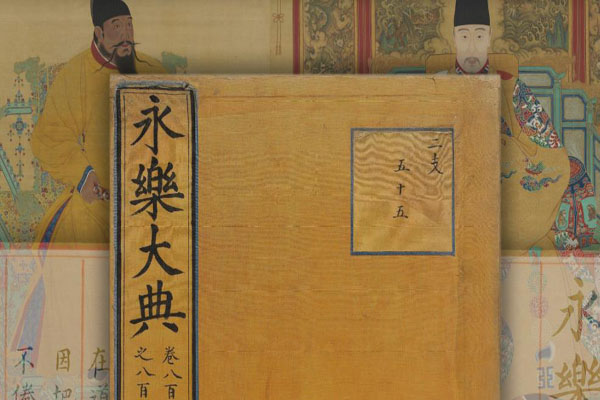 永樂大典
卷八百
之八百
二支
五十五
永樂
在道
因把
不倦